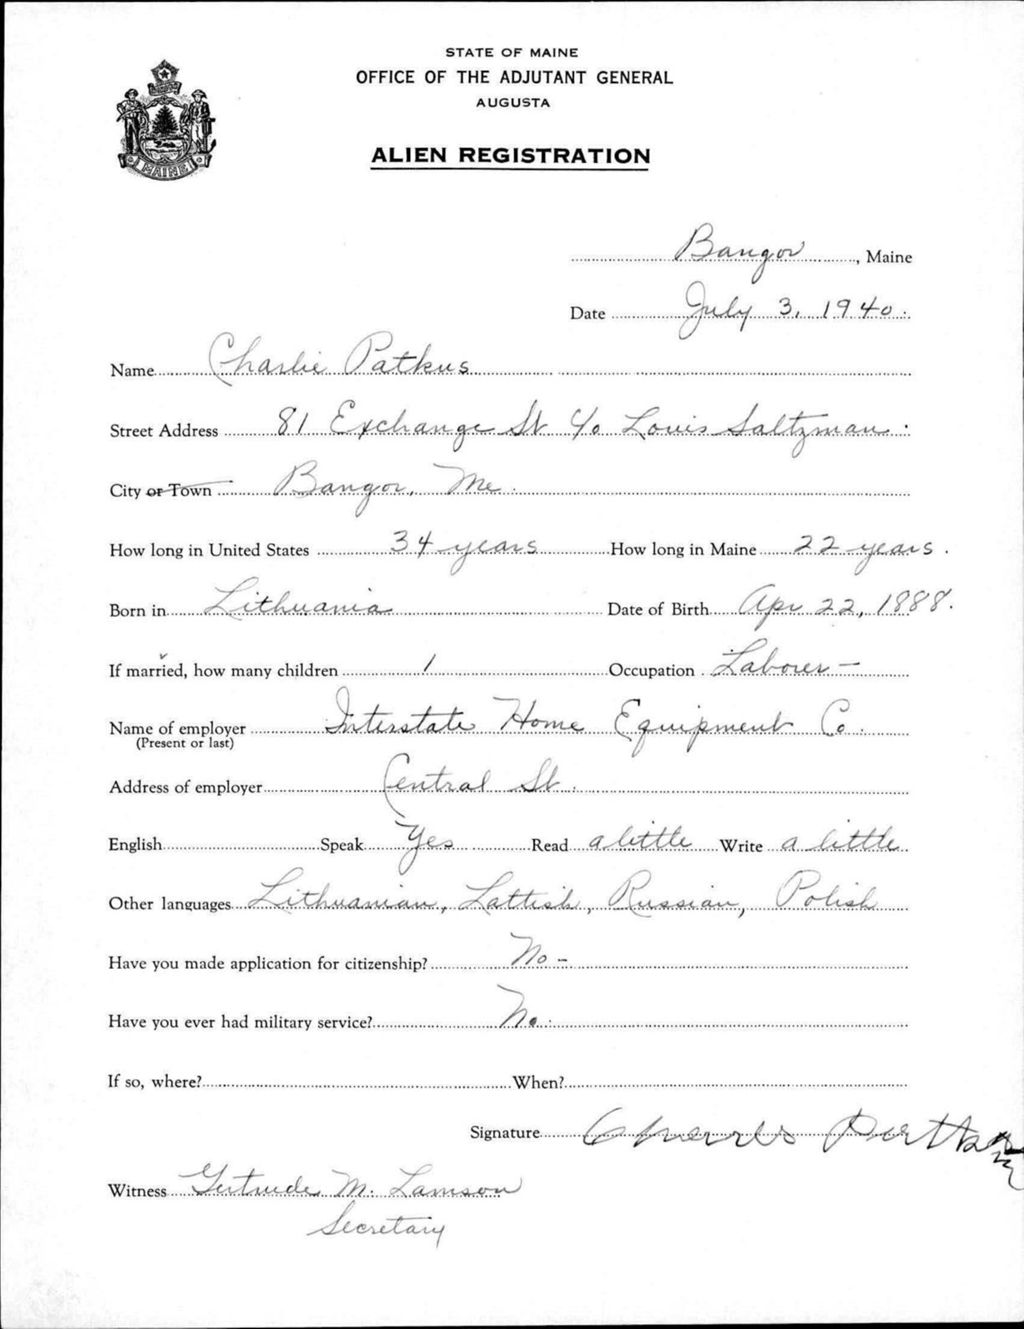 STATE OF MAINE
OFFICE OF THE ADJUTANT GENERAL
AUGUSTA
ALIEN REGISTRATION
MAINE
Bangor, Maine
Date July 3, 1940.
Name Charlie Patkus
Street Address 81 Exchange St c/o Louis Saltzman.
City or Town Bangor, Me.
How long in United States 34 years How long in Maine 22 years.
Born in Lithuania Date of Birth Apr 22, 1888.
If married, how many children 1 Occupation Laborer -
Name of employer Interstate Home Equipment Co.
(Present or last)
Address of employer Central St.
English Speak Yes Read a little Write a little
Other languages Lithuanian, Lattish, Russian, Polish
Have you made application for citizenship? No -
Have you ever had military service? No.
If so, where? When?
Signature
Witness Gertrude M. Lamson
Secretary